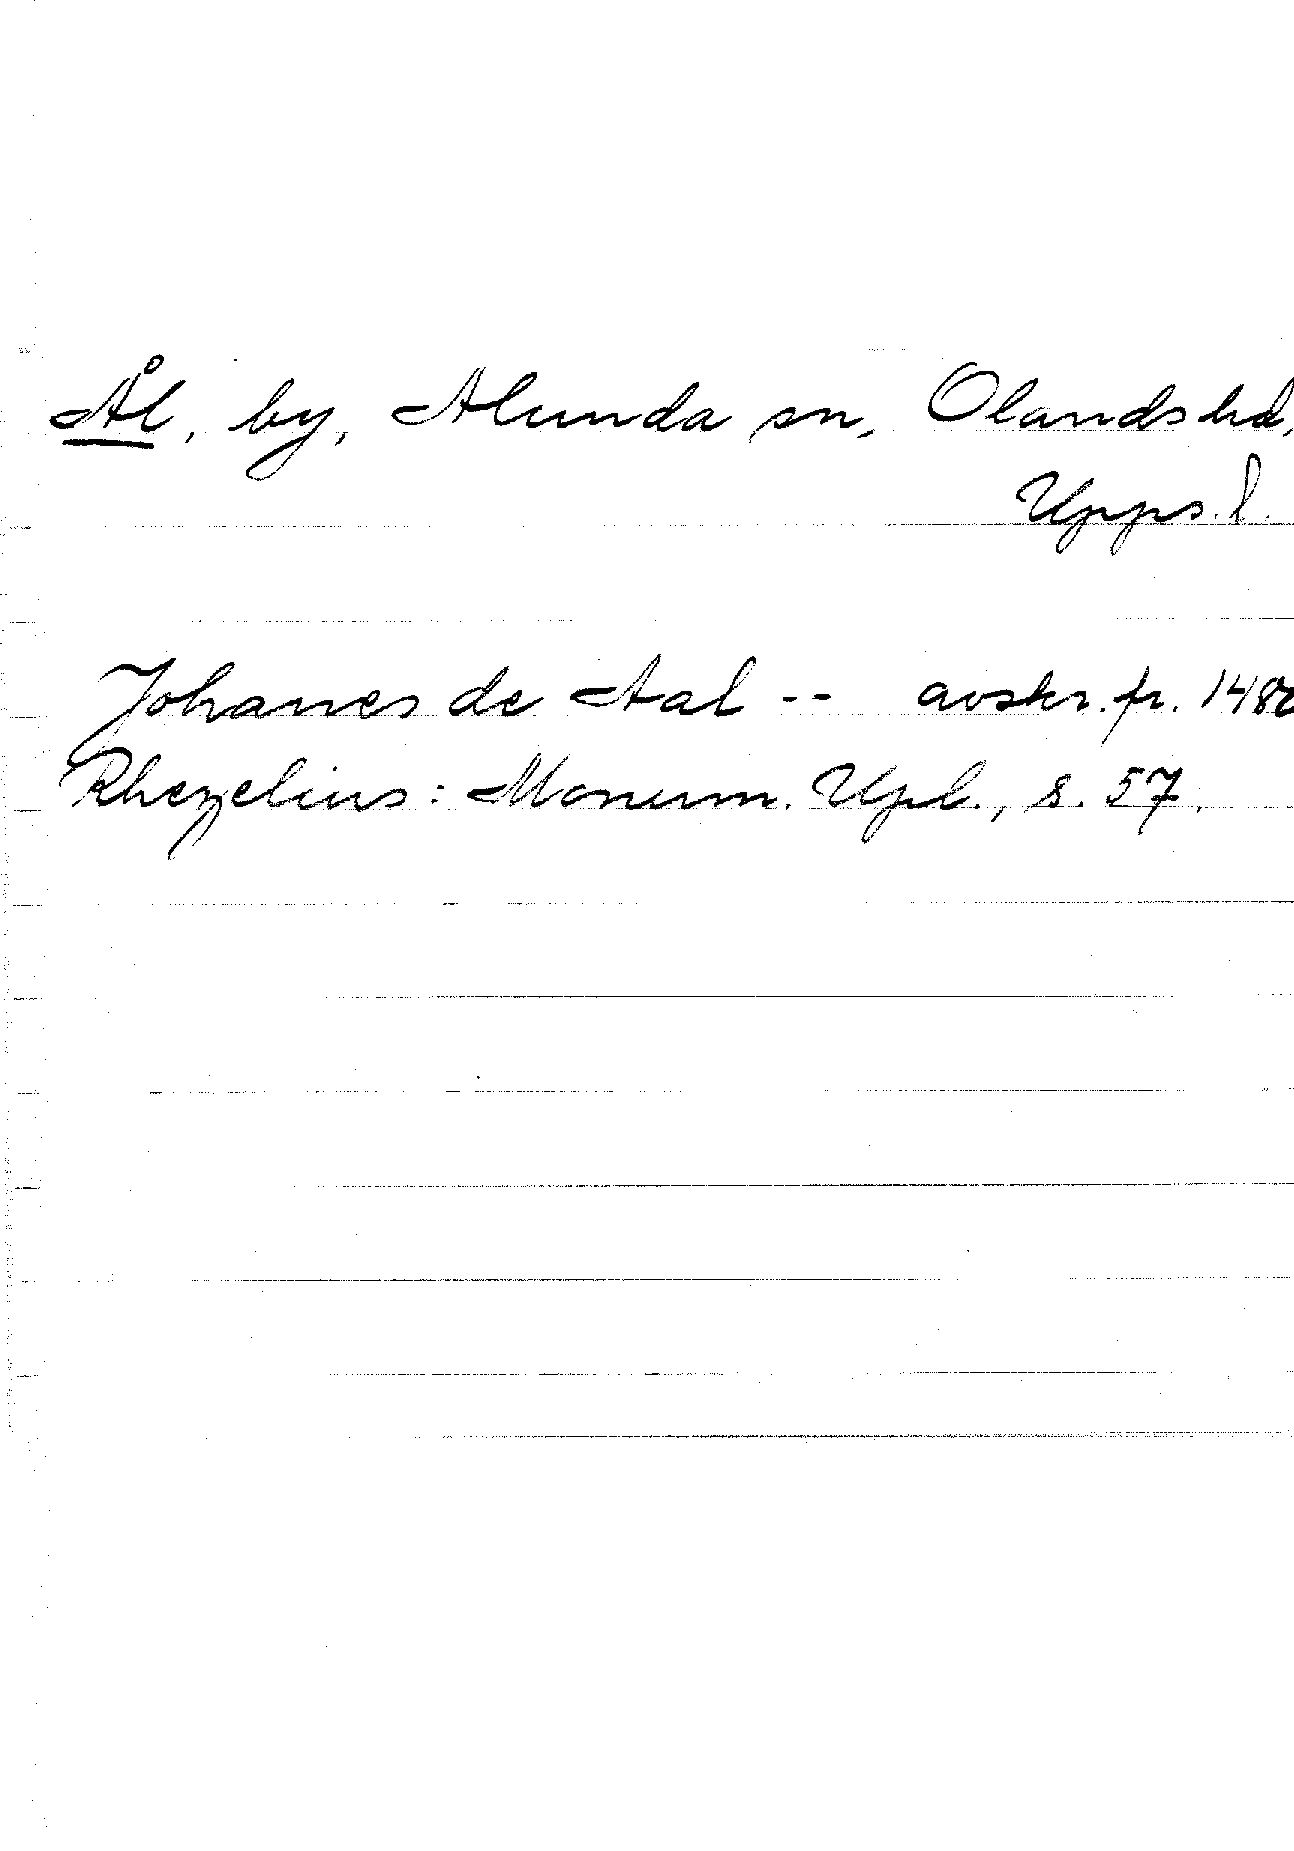 Ål, by, Alunda sn, Olands hd,
Upps. l.
Johannes de Aal -- avskr. fr.
Rhezelius: Monum. Upl., s. 57.